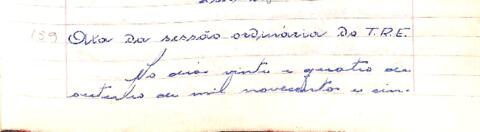 159 Ata da sessão ordinária do T.R.E.
No dia vinte e quatro de
outubro de mil novecentos e cin-